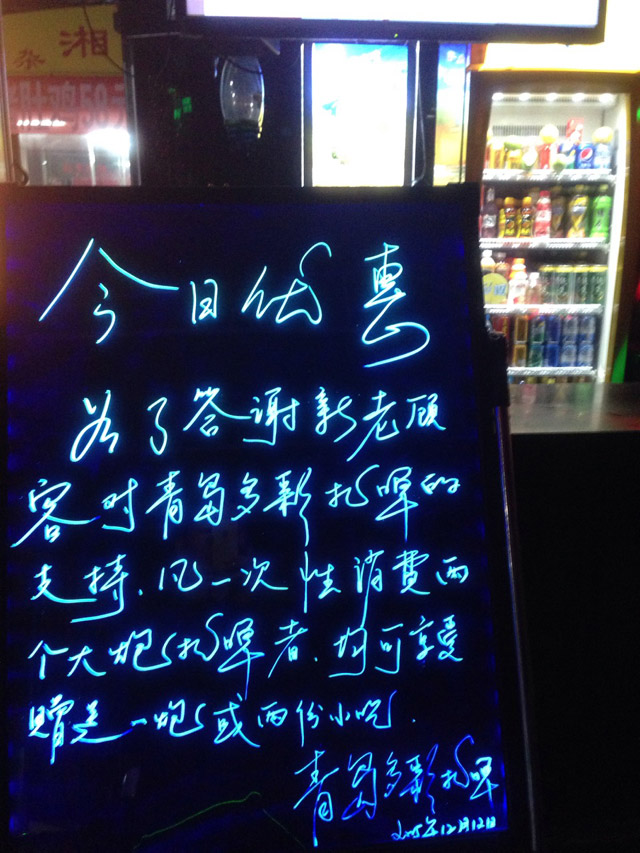 湘
今日优惠
为了答谢新老顾
客对青岛多彩扎啤的
支持、凡一次性消费两
个大炮扎啤者、均可享受
赠送一炮或两份小吃.
青岛多彩扎啤
2015年12月12日